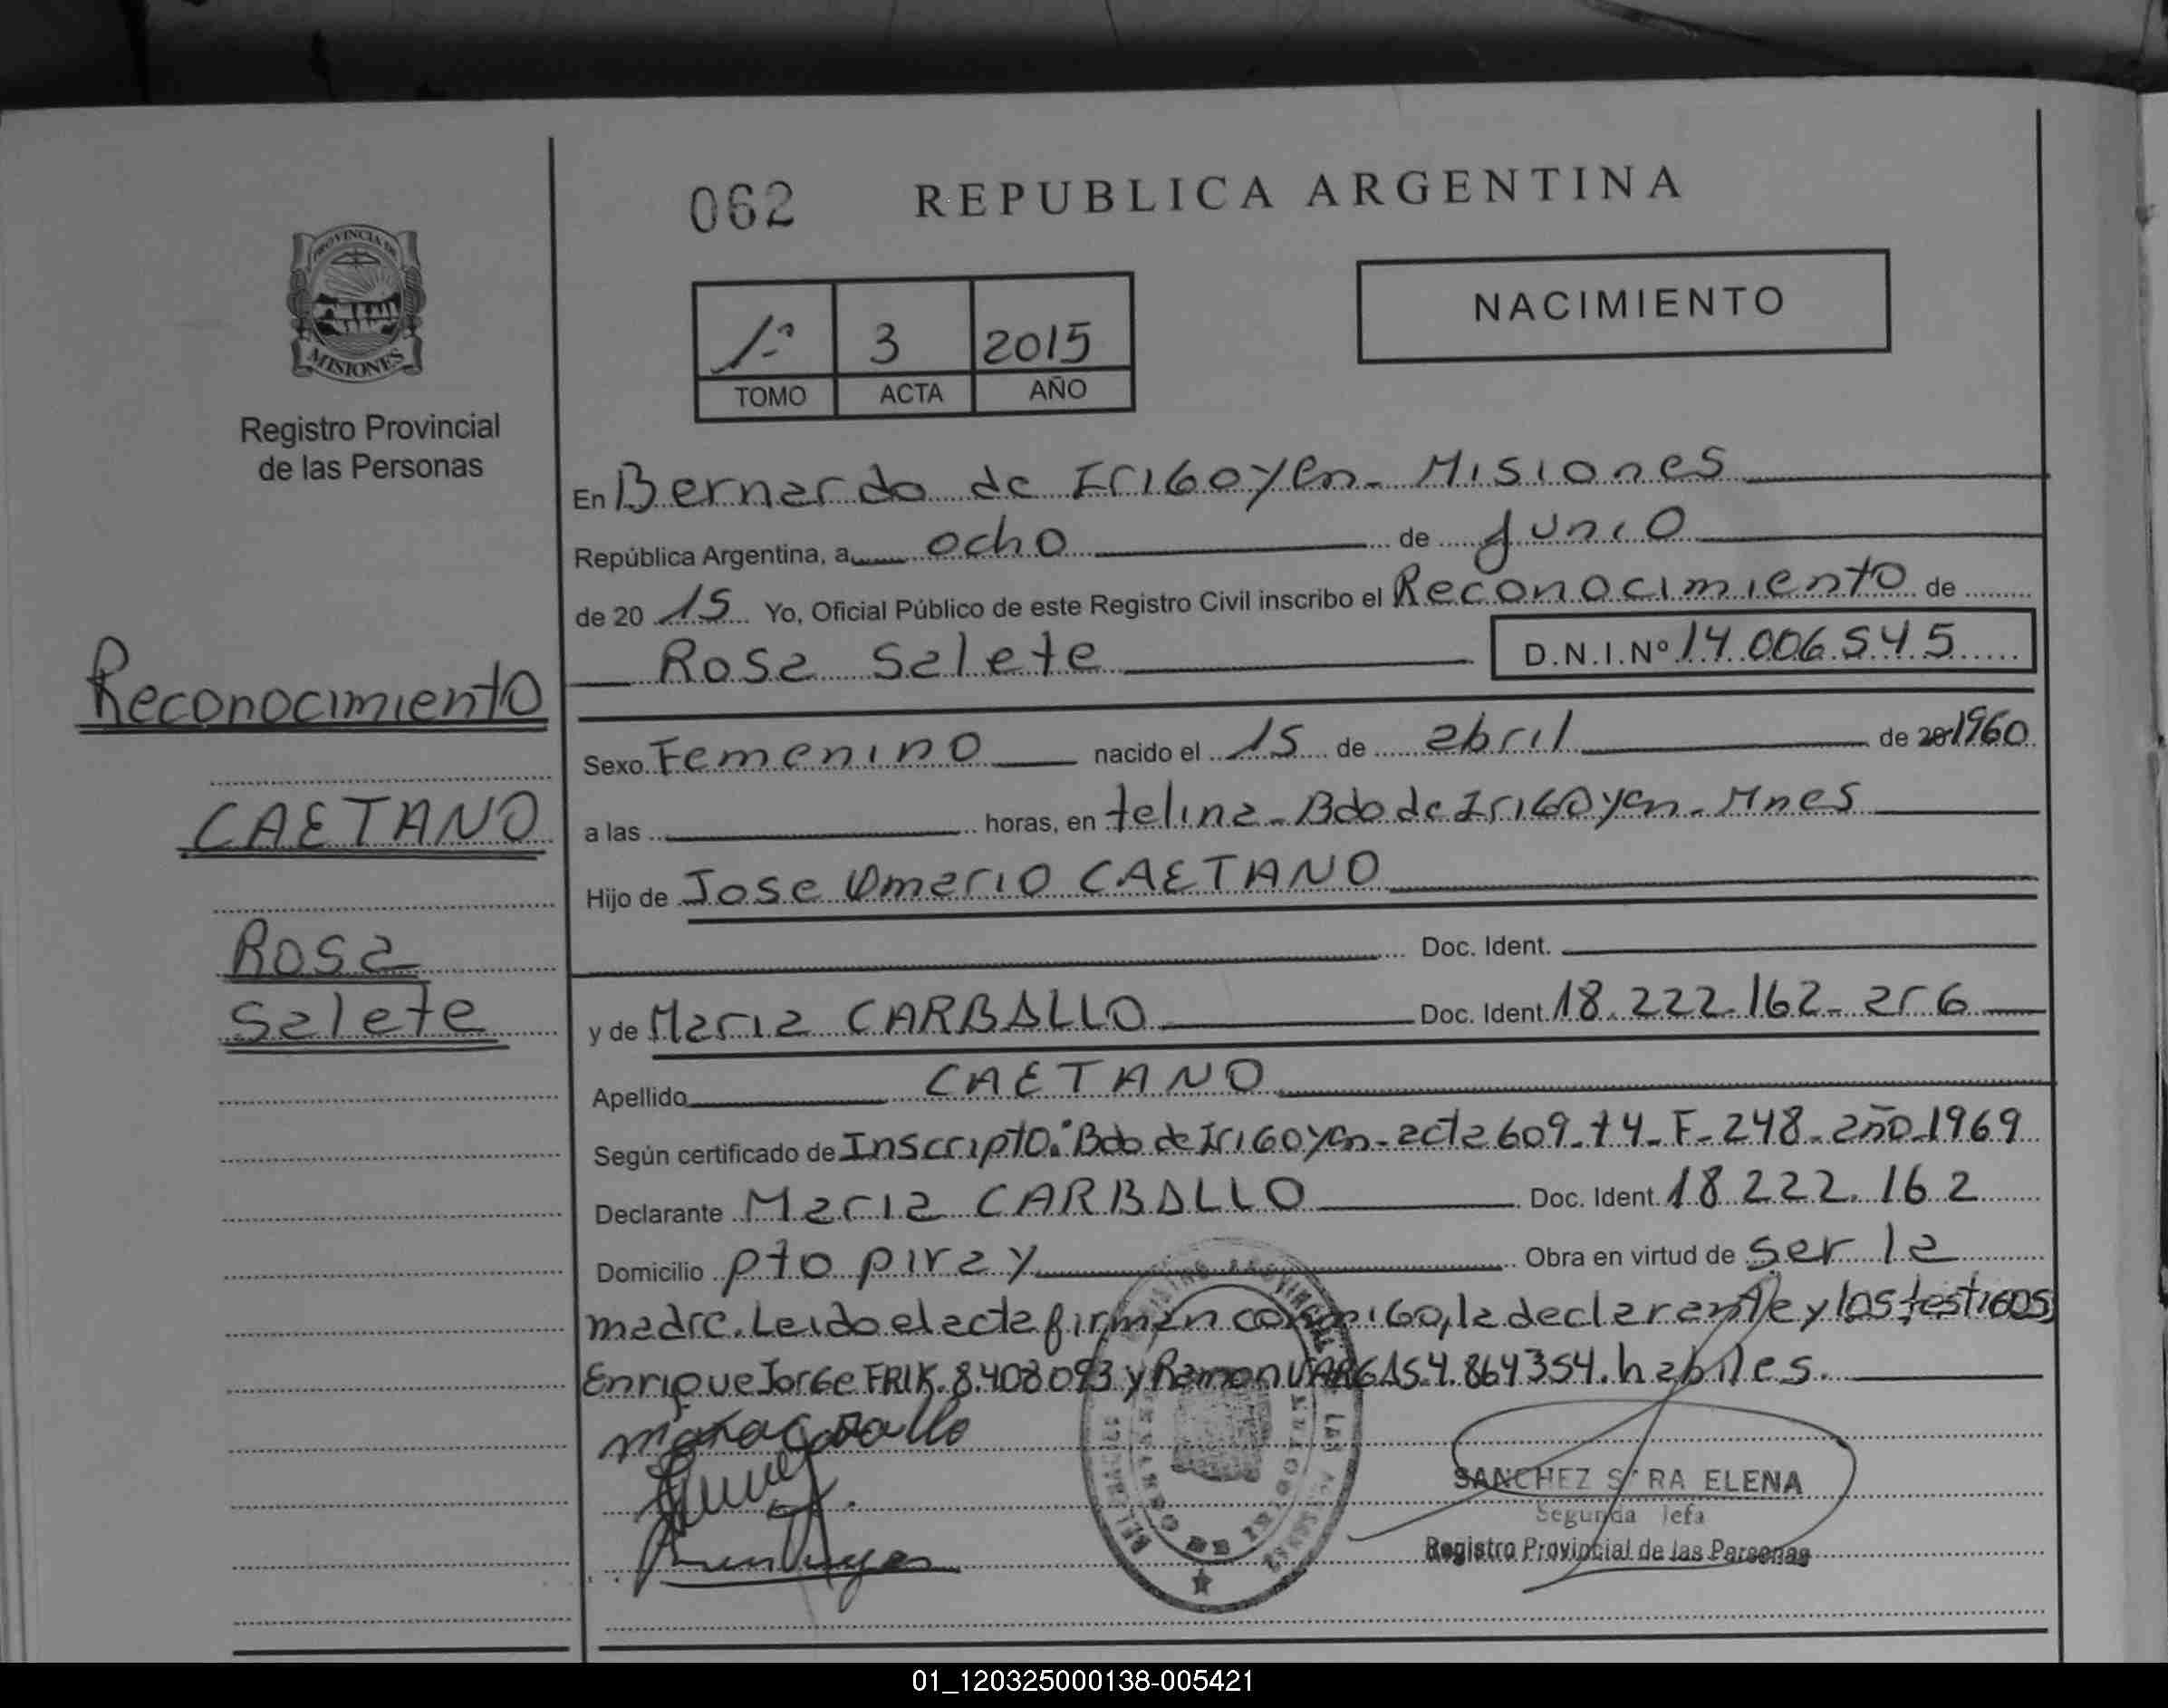 062 REPUBLICA ARGENTINA
PROVINCIA DE
MISIONES
Registro Provincial
de las Personas
Reconocimiento
CAETANO
Rosa
Salete
1º 3 2015
TOMO ACTA AÑO
NACIMIENTO
En Bernardo de Irigoyen - Misiones
República Argentina, a ocho de Junio
de 20 15 Yo, Oficial Público de este Registro Civil inscribo el Reconocimiento de
Rosa Salete D.N.I.Nº 14.006.545
Sexo Femenino nacido el 15 de abril de 20 1960
a las horas, en telina - Bdo de Irigoyen - Mnes
Hijo de Jose Omario CAETANO
Doc. Ident.
y de Maria CARBALLO Doc. Ident. 18.222.162- arG
Apellido CAETANO
Según certificado de Inscripto: Bdo de Irigoyen - acta 609 - t 4 - F - 248 - año 1969
Declarante Maria CARBALLO Doc. Ident. 18.222.162
Domicilio pto piray Obra en virtud de ser la
madre. Leido el acta firman conmigo, la declarante y los testigos
Enrique Jorge FRIK. 8.408093 y Ramon VARGAS 4.864354. habiles.
SANCHEZ SARA ELENA
Segunda Jefa
Registro Provincial de las Personas
01_120325000138-005421